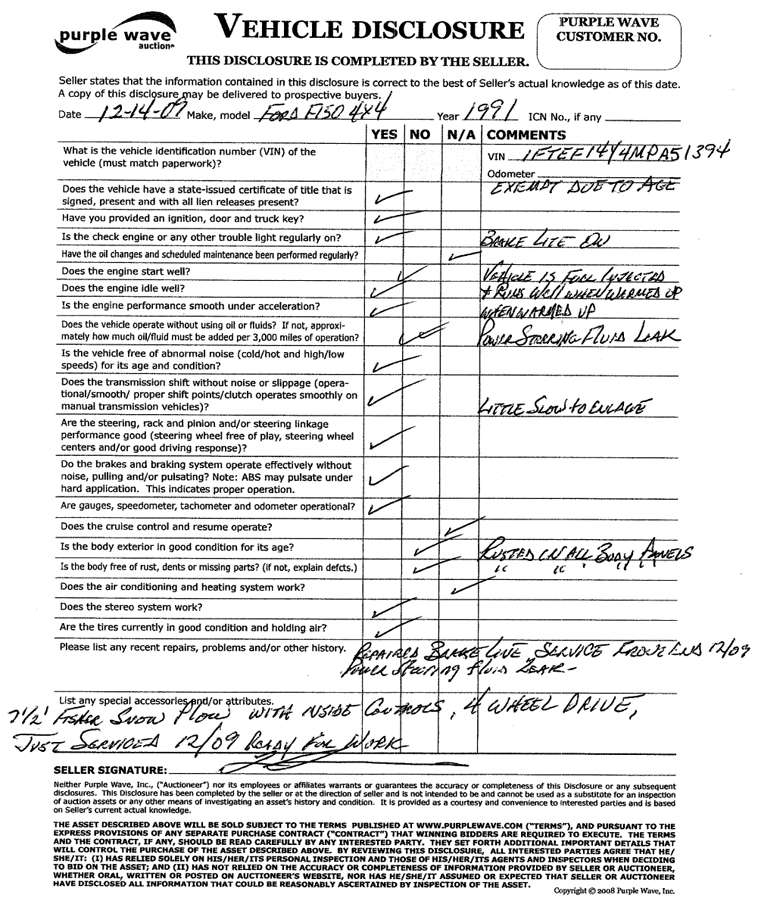 purple wave
auction®
VEHICLE DISCLOSURE
PURPLE WAVE
CUSTOMER NO.
THIS DISCLOSURE IS COMPLETED BY THE SELLER.
Seller states that the information contained in this disclosure is correct to the best of Seller's actual knowledge as of this date.
A copy of this disclosure may be delivered to prospective buyers.
Date 12-14-09 Make, model FORD F150 4X4 Year 1991 ICN No., if any
YES NO N/A COMMENTS
What is the vehicle identification number (VIN) of the
vehicle (must match paperwork)?
VIN 1FTEF14Y4MPA51394
Odometer
EXEMPT DUE TO AGE
Does the vehicle have a state-issued certificate of title that is
signed, present and with all lien releases present?
Have you provided an ignition, door and truck key?
Is the check engine or any other trouble light regularly on? BRAKE LITE ON
Have the oil changes and scheduled maintenance been performed regularly?
Does the engine start well? VEHICLE IS FUEL INJECTED
Does the engine idle well? & RUNS WELL WHEN WARMED UP
Is the engine performance smooth under acceleration? WHEN WARMED UP
Does the vehicle operate without using oil or fluids? If not, approxi-
mately how much oil/fluid must be added per 3,000 miles of operation? POWER STEERING FLUID LEAK
Is the vehicle free of abnormal noise (cold/hot and high/low
speeds) for its age and condition?
Does the transmission shift without noise or slippage (opera-
tional/smooth/ proper shift points/clutch operates smoothly on
manual transmission vehicles)? LITTLE SLOW TO ENGAGE
Are the steering, rack and pinion and/or steering linkage
performance good (steering wheel free of play, steering wheel
centers and/or good driving response)?
Do the brakes and braking system operate effectively without
noise, pulling and/or pulsating? Note: ABS may pulsate under
hard application. This indicates proper operation.
Are gauges, speedometer, tachometer and odometer operational?
Does the cruise control and resume operate?
Is the body exterior in good condition for its age? RUSTED IN ALL BODY PANELS
Is the body free of rust, dents or missing parts? (if not, explain defcts.) " " " " "
Does the air conditioning and heating system work?
Does the stereo system work?
Are the tires currently in good condition and holding air?
Please list any recent repairs, problems and/or other history. REPAIRED BRAKE LINE, SERVICE FRONT END 12/09
Power Steering fluid LEAK-
List any special accessories and/or attributes.
7 1/2' FISHER SNOW PLOW WITH INSIDE CONTROLS, 4 WHEEL DRIVE,
JUST SERVICED 12/09 READY FOR WORK
SELLER SIGNATURE:
Neither Purple Wave, Inc., ("Auctioneer") nor its employees or affiliates warrants or guarantees the accuracy or completeness of this Disclosure or any subsequent
disclosures. This Disclosure has been completed by the seller or at the direction of seller and is not intended to be and cannot be used as a substitute for an inspection
of auction assets or any other means of investigating an asset's history and condition. It is provided as a courtesy and convenience to interested parties and is based
on Seller's current actual knowledge.
THE ASSET DESCRIBED ABOVE WILL BE SOLD SUBJECT TO THE TERMS PUBLISHED AT WWW.PURPLEWAVE.COM ("TERMS"), AND PURSUANT TO THE
EXPRESS PROVISIONS OF ANY SEPARATE PURCHASE CONTRACT ("CONTRACT") THAT WINNING BIDDERS ARE REQUIRED TO EXECUTE. THE TERMS
AND THE CONTRACT, IF ANY, SHOULD BE READ CAREFULLY BY ANY INTERESTED PARTY. THEY SET FORTH ADDITIONAL IMPORTANT DETAILS THAT
WILL CONTROL THE PURCHASE OF THE ASSET DESCRIBED ABOVE. BY REVIEWING THIS DISCLOSURE, ALL INTERESTED PARTIES AGREE THAT HE/
SHE/IT: (I) HAS RELIED SOLELY ON HIS/HER/ITS PERSONAL INSPECTION AND THOSE OF HIS/HER/ITS AGENTS AND INSPECTORS WHEN DECIDING
TO BID ON THE ASSET; AND (II) HAS NOT RELIED ON THE ACCURACY OR COMPLETENESS OF INFORMATION PROVIDED BY SELLER OR AUCTIONEER,
WHETHER ORAL, WRITTEN OR POSTED ON AUCTIONEER'S WEBSITE, NOR HAS HE/SHE/IT ASSUMED OR EXPECTED THAT SELLER OR AUCTIONEER
HAVE DISCLOSED ALL INFORMATION THAT COULD BE REASONABLY ASCERTAINED BY INSPECTION OF THE ASSET.
Copyright © 2008 Purple Wave, Inc.